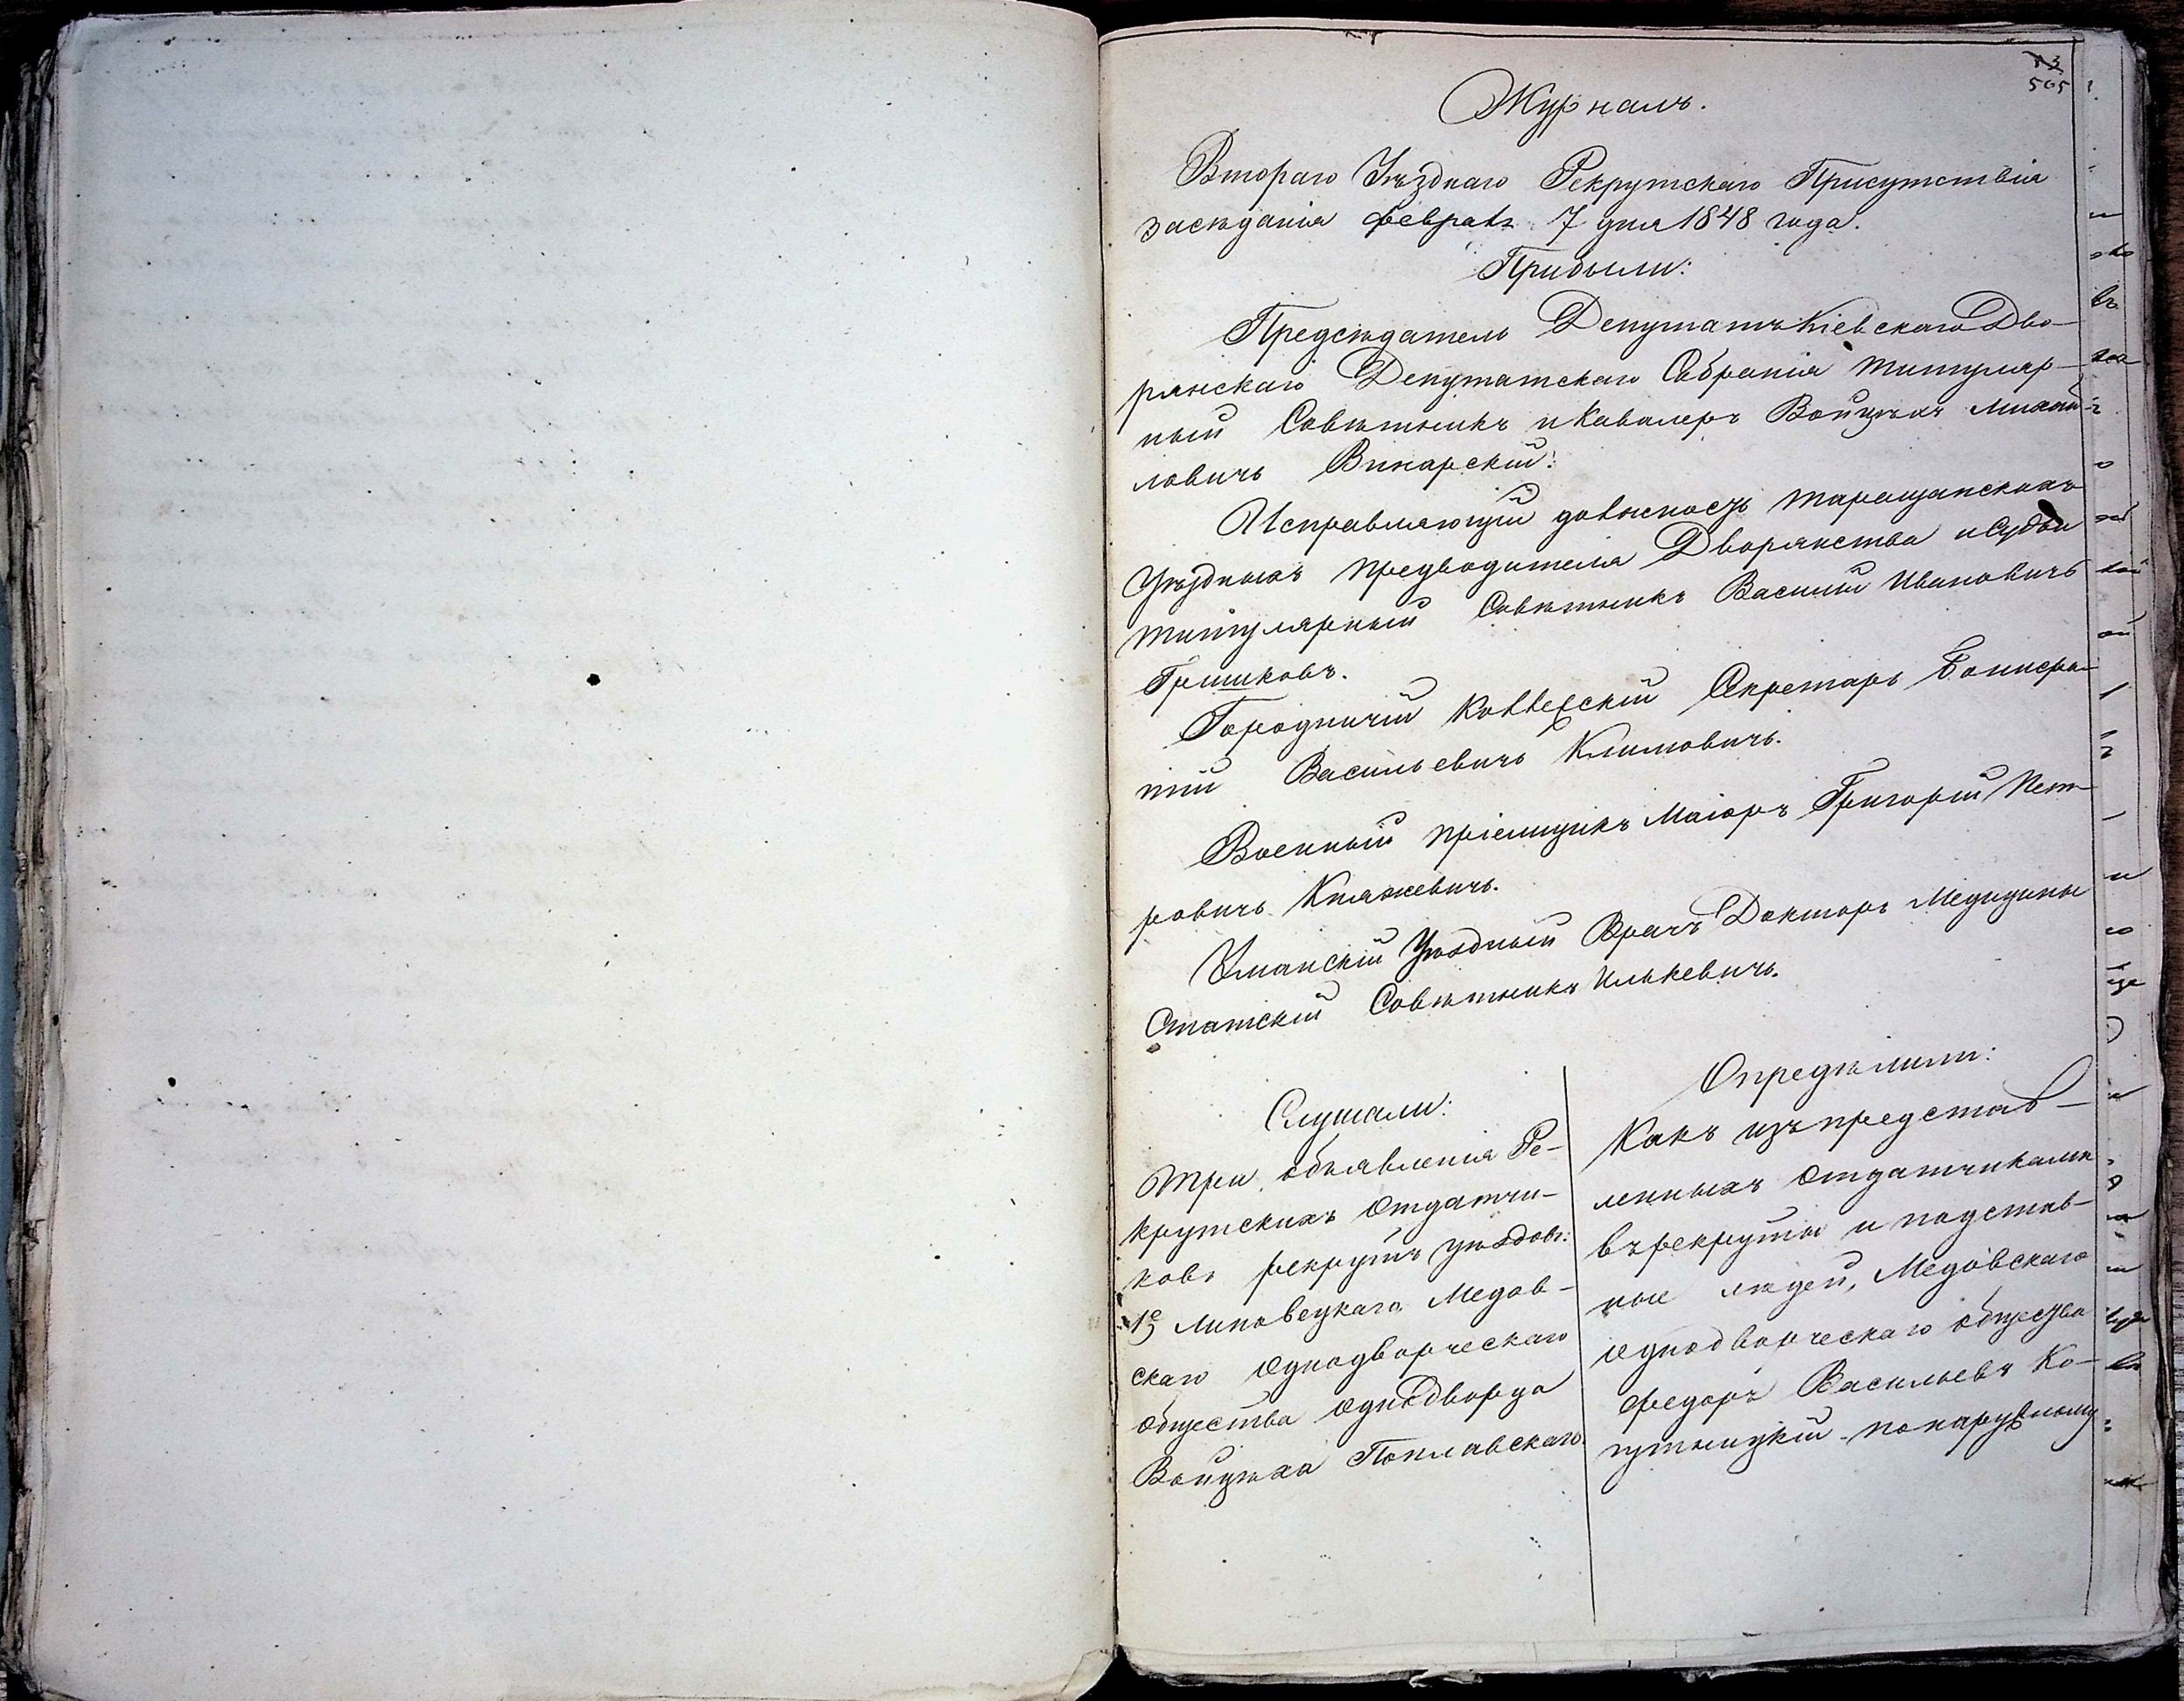 505
Журналъ.
Втораго Уѣзднаго Рекрутскаго Присутствія
засѣданія февраля 7 дня 1848 года.
Прибыли:
Предсѣдатель Депутатъ Кіевскаго Дво-
рянскаго Депутатскаго Собранія титуляр-
ный Совѣтникъ и Кавалеръ Войцѣхъ Михай-
ловичъ Винарскій.
Исправляющій должность таращанскихъ
Уѣздныхъ предводителя Дворянства и Судьи
титулярный Совѣтникъ Василій Ивановичъ
Гришковъ.
Городничій Коллежскій Секретарь Бонифа-
тій Васильевичъ Климовичъ.
Военный пріемщикъ Маіоръ Григорій Пет-
ровичъ Княжевичъ.
Уманскій Уѣздный Врачъ Докторъ Медицины
Статскій Совѣтникъ Илькевичъ.
Слушали:
три объявленія Ре-
крутскихъ отдатчи-
ковъ рекрутъ уѣздовъ:
1е Липовецкаго, Медов-
скаго однодворческаго
общества однодворца
Войцѣха Поплавскаго
Опредѣлили:
Какъ изъ представ-
ленныхъ отдатчиками
въ рекруты и подстав-
ные людей, Медовскаго
однодворческаго общества
Федоръ Васильевъ Ко-
по наружному